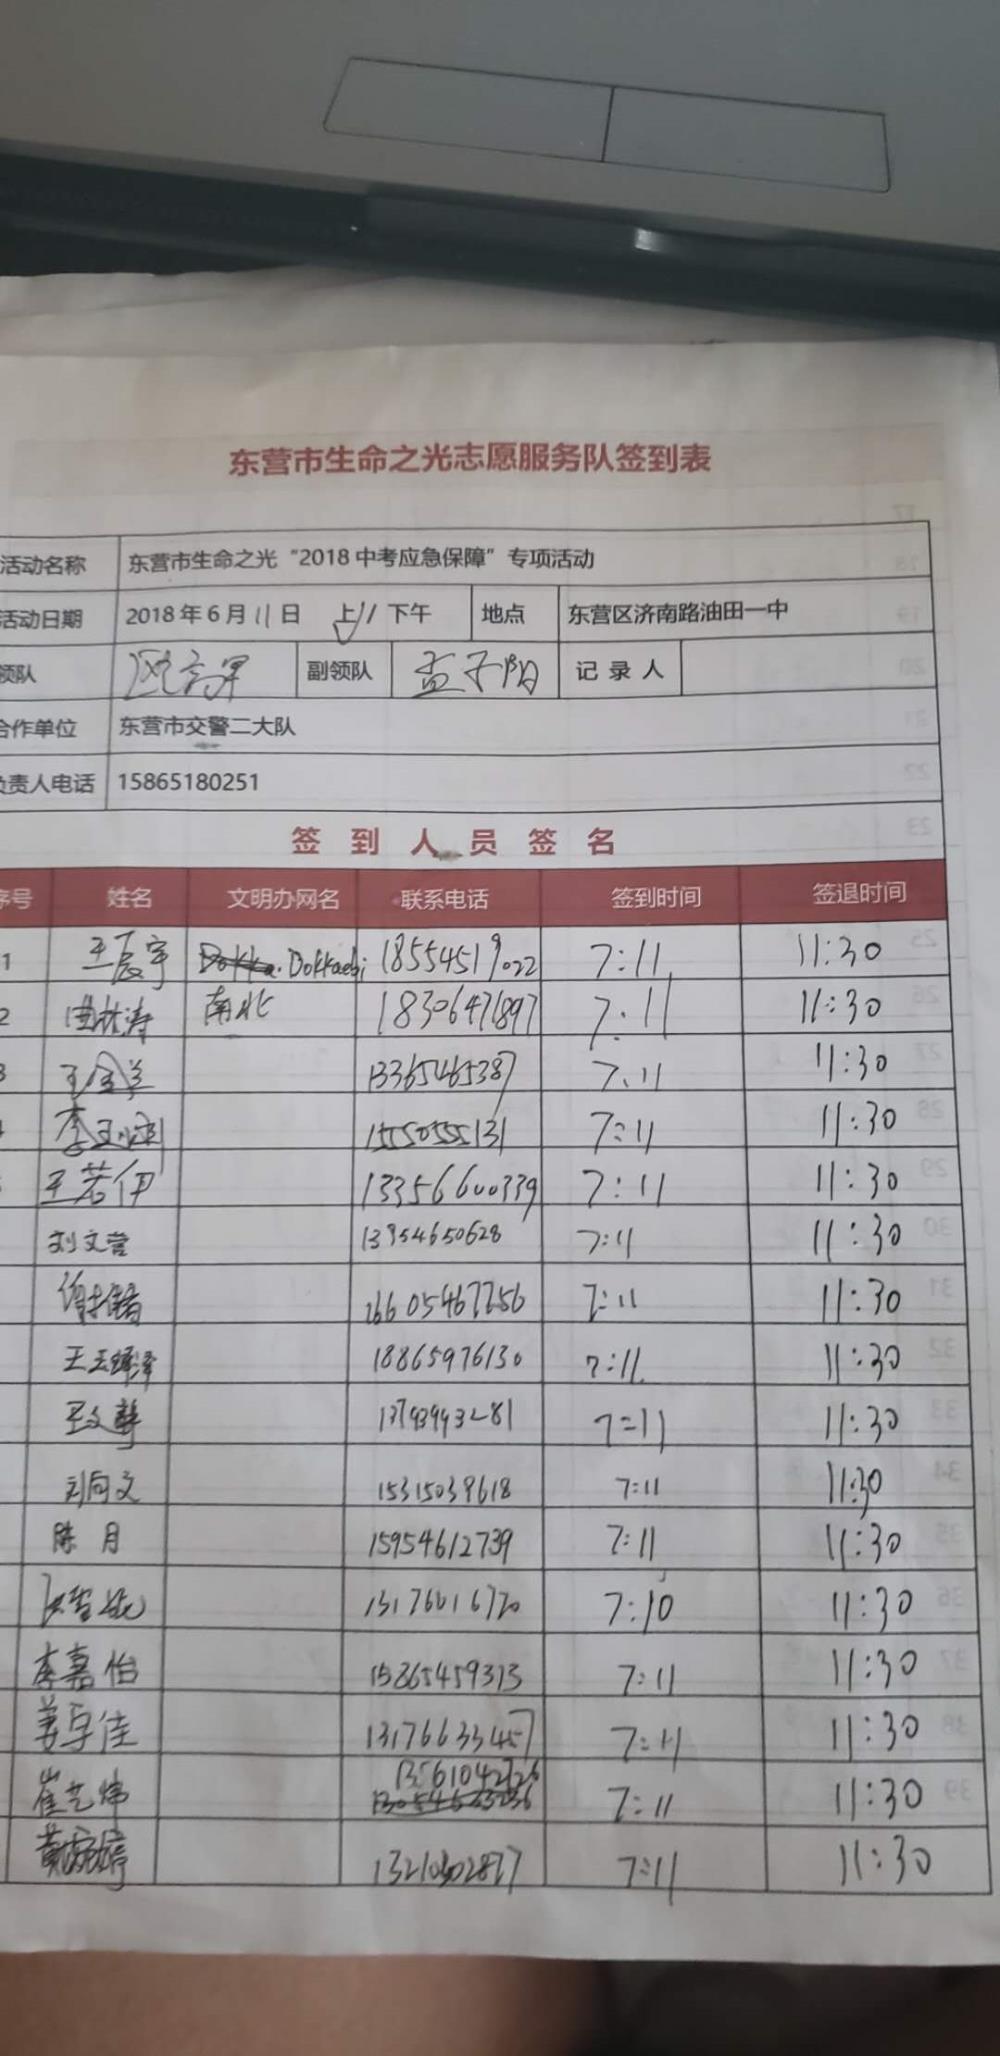 东营市生命之光志愿服务队签到表
活动名称 东营市生命之光“2018中考应急保障”专项活动
活动日期 2018年6月11日 上/下午 地点 东营区济南路油田一中
领队 副领队 孟子阳 记录人
合作单位 东营市交警二大队
负责人电话 15865180251
签到人员签名
序号 姓名 文明办网名 联系电话 签到时间 签退时间
1 王辰宇 Dokkaebi 18554519022 7:11 11:30
2 曲林涛 南北 18306471897 7:11 11:30
3 13365465387 7:11 11:30
15550555131 7:11 11:30
王若伊 13356600339 7:11 11:30
刘文营 13954650628 7:11 11:30
16605467256 7:11 11:30
18865976130 7:11 11:30
13793943281 7:11 11:30
刘向文 15315039618 7:11 11:30
陈月 15954612739 7:11 11:30
13176016720 7:10 11:30
李嘉怡 15865459313 7:11 11:30
姜宇佳 13176633457 7:11 11:30
崔艺炜 13561042726 7:11 11:30
7:11 11:30